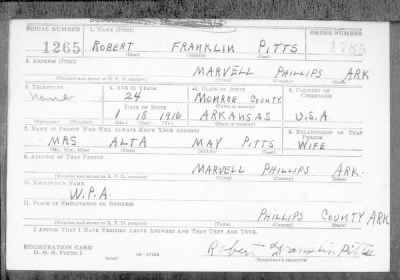 SERIAL NUMBER 1. NAME (Print) ORDER NUMBER
1265 ROBERT FRANKLIN PITTS 1785
(First) (Middle) (Last)
2. ADDRESS (Print)
MARVELL PHILLIPS ARK
(Number and street or R. F. D. number) (Town) (County) (State)
3. TELEPHONE 4. AGE IN YEARS 5. PLACE OF BIRTH 6. COUNTRY OF CITIZENSHIP
None 24 MONROE COUNTY
DATE OF BIRTH (Town or county)
1 18 1916 ARKANSAS U.S.A
(Mo.) (Day) (Yr.) (State or country)
7. NAME OF PERSON WHO WILL ALWAYS KNOW YOUR ADDRESS 8. RELATIONSHIP OF THAT PERSON
MRS ALTA MAY PITTS WIFE
(Mr., Mrs., Miss) (First) (Middle) (Last)
9. ADDRESS OF THAT PERSON
MARVELL PHILLIPS ARK.
(Number and street or R. F. D. number) (Town) (County) (State)
10. EMPLOYER'S NAME
W.P.A.
11. PLACE OF EMPLOYMENT OR BUSINESS
PHILLIPS COUNTY ARK
(Number and street or R. F. D. number) (Town) (County) (State)
I AFFIRM THAT I HAVE VERIFIED ABOVE ANSWERS AND THAT THEY ARE TRUE.
REGISTRATION CARD
D. S. S. Form 1 Robert Franklin Pitts
(Registrant's signature)